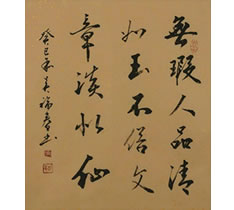 無瑕人品清
如玉不俗文
章淡似仙
癸巳年